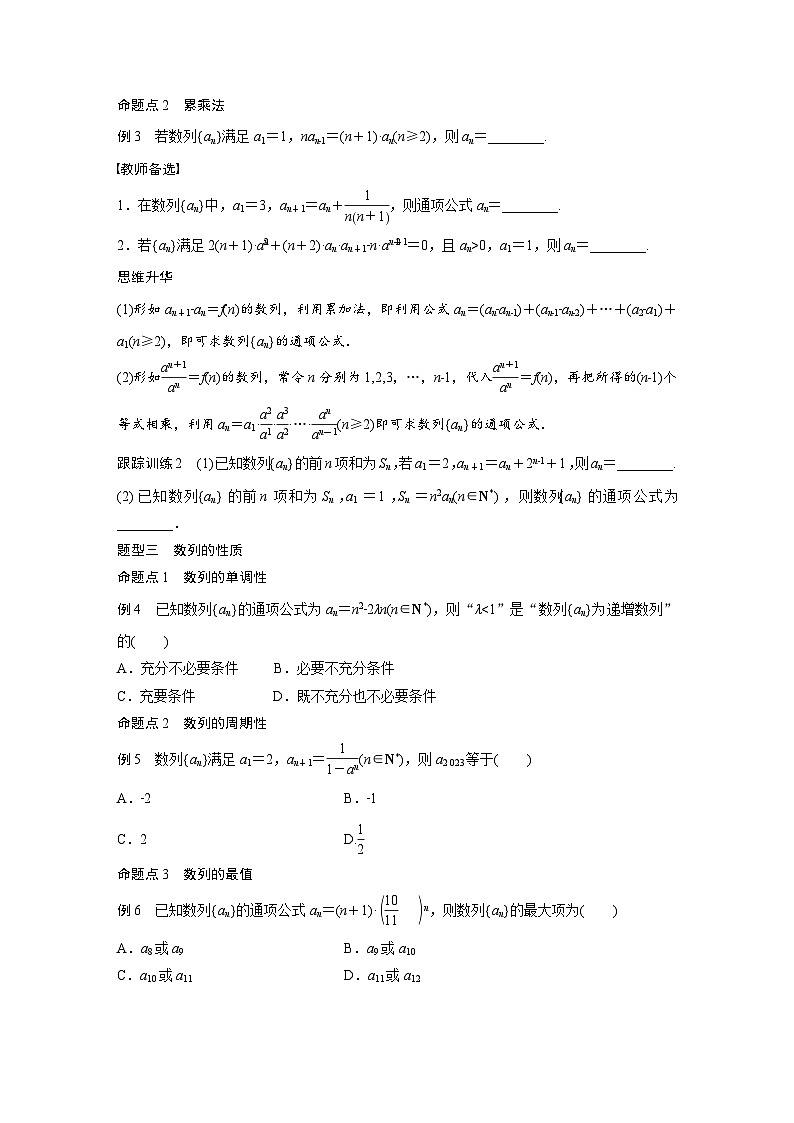 命题点2　累乘法
例3　若数列{aₙ}满足a₁＝1，naₙ₋₁＝(n＋1)·aₙ(n≥2)，则aₙ＝________.
教师备选
1．在数列{aₙ}中，a₁＝3，aₙ₊₁＝aₙ＋1/n(n＋1)，则通项公式aₙ＝________.
2．若{aₙ}满足2(n＋1)·a＋(n＋2)·aₙ·aₙ₊₁-n·a＝0，且aₙ>0，a₁＝1，则aₙ＝________.
思维升华
(1)形如aₙ₊₁-aₙ＝f(n)的数列，利用累加法，即利用公式aₙ＝(aₙ-aₙ₋₁)＋(aₙ₋₁-aₙ₋₂)＋…＋(a₂-a₁)＋
a₁(n≥2)，即可求数列{aₙ}的通项公式．
(2)形如aⁿ⁺¹/aⁿ＝f(n)的数列，常令n分别为1,2,3，…，n-1，代入aⁿ⁺¹/aⁿ＝f(n)，再把所得的(n-1)个
等式相乘，利用aₙ＝a₁·a²/a¹·a³/a²·…·aⁿ/aⁿ⁻¹(n≥2)即可求数列{aₙ}的通项公式．
跟踪训练2　(1)已知数列{aₙ}的前n项和为Sₙ,若a₁＝2,aₙ₊₁＝aₙ＋2ⁿ⁻¹＋1,则aₙ＝________.
(2)已知数列{aₙ}的前n项和为Sₙ,a₁＝1,Sₙ＝n²aₙ(n∈N*)，则数列{aₙ}的通项公式为
________．
题型三　数列的性质
命题点1　数列的单调性
例4　已知数列{aₙ}的通项公式为aₙ＝n²-2λn(n∈N*)，则“λ<1”是“数列{aₙ}为递增数列”
的(　　)
A．充分不必要条件　　B．必要不充分条件
C．充要条件　　D．既不充分也不必要条件
命题点2　数列的周期性
例5　数列{aₙ}满足a₁＝2，aₙ₊₁＝1/1－aⁿ(n∈N*)，则a₂ ₀₂₃等于(　　)
A．-2　　B．-1
C．2　　D.1/2
命题点3　数列的最值
例6　已知数列{aₙ}的通项公式aₙ＝(n＋1)·(10/11)ⁿ，则数列{aₙ}的最大项为(　　)
A．a₈或a₉　　B．a₉或a₁₀
C．a₁₀或a₁₁　　D．a₁₁或a₁₂